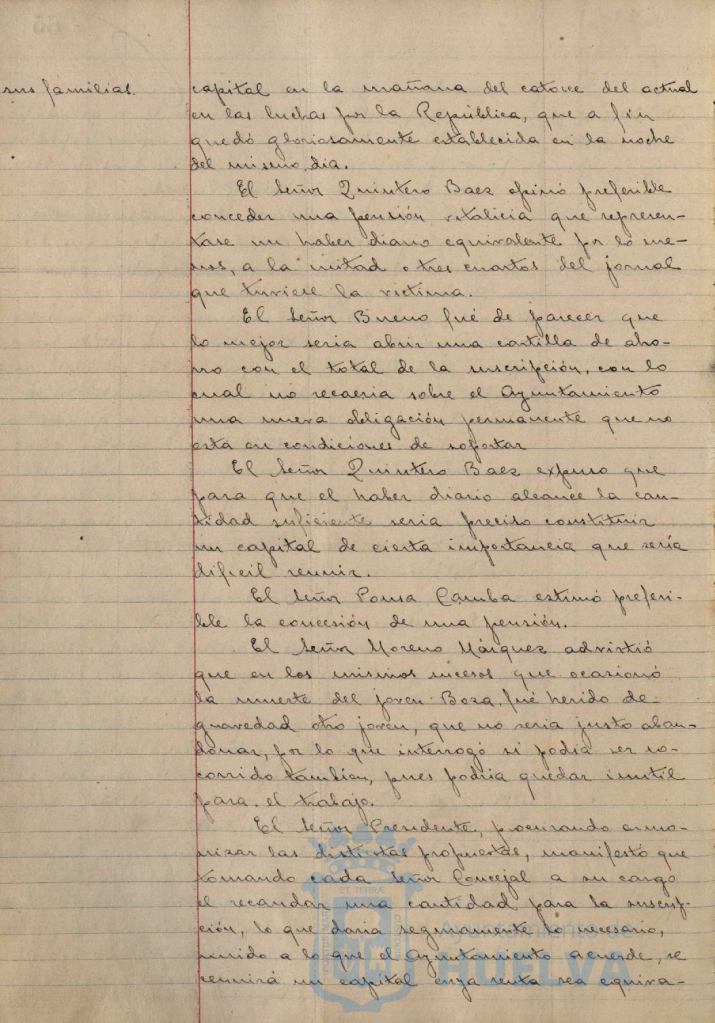 sus familias.
capital en la mañana del catorce del actual
en las luchas por la República, que a fin
quedó gloriosamente establecida en la noche
del mismo dia.
El Señor Quintero Baez opinó preferible
conceder una pensión vitalicia que represen-
tase un haber diario equivalente por lo me-
nos, a la mitad o tres cuartos del jornal
que tuviese la victima.
El Señor Bueno fué de parecer que
lo mejor seria abrir una cartilla de aho-
rro con el total de la suscripción, con lo
cual no recaeria sobre el Ayuntamiento
una nueva obligación permanente que no
está en condiciones de soportar
El Señor Quintero Baez expuso que
para que el haber diario alcance la can-
tidad suficiente seria preciso constituir
un capital de cierta importancia que sería
dificil reunir.
El Señor Ponsa Camba estimó preferi-
ble la concesión de una pensión.
El Señor Moreno Márquez advirtió
que en los mismos sucesos que ocasionó
la muerte del joven Boza, fué herido de
gravedad otro joven, que no seria justo aban-
donar, por lo que interrogó si podía ser so-
corrido tambien, pues podria quedar inutil
para el trabajo.
El Señor Presidente, procurando armo-
nizar las distintas propuestas, manifestó que
tomando cada Señor Concejal a su cargo
el recaudar una cantidad para la suscrip-
ción, lo que daria seguramente lo necesario,
unido a lo que el Ayuntamiento acuerde, se
reunirá un capital cuya renta sea equiva-
Ayuntamiento de
HUELVA